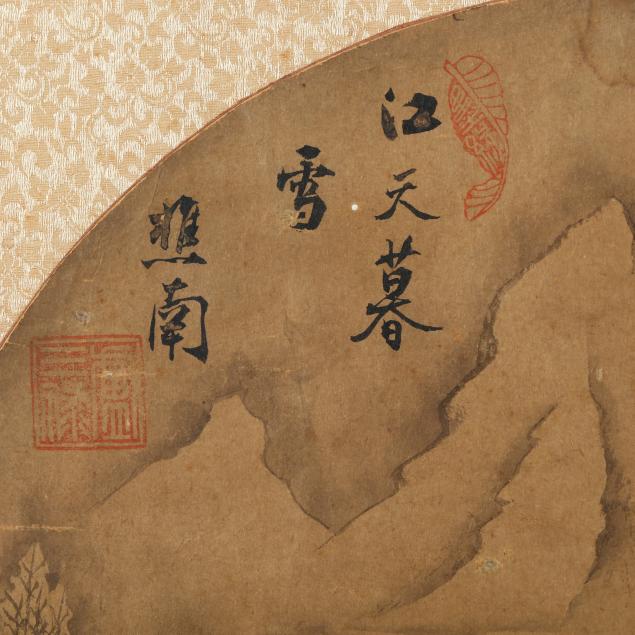 江天暮
雪
焦南